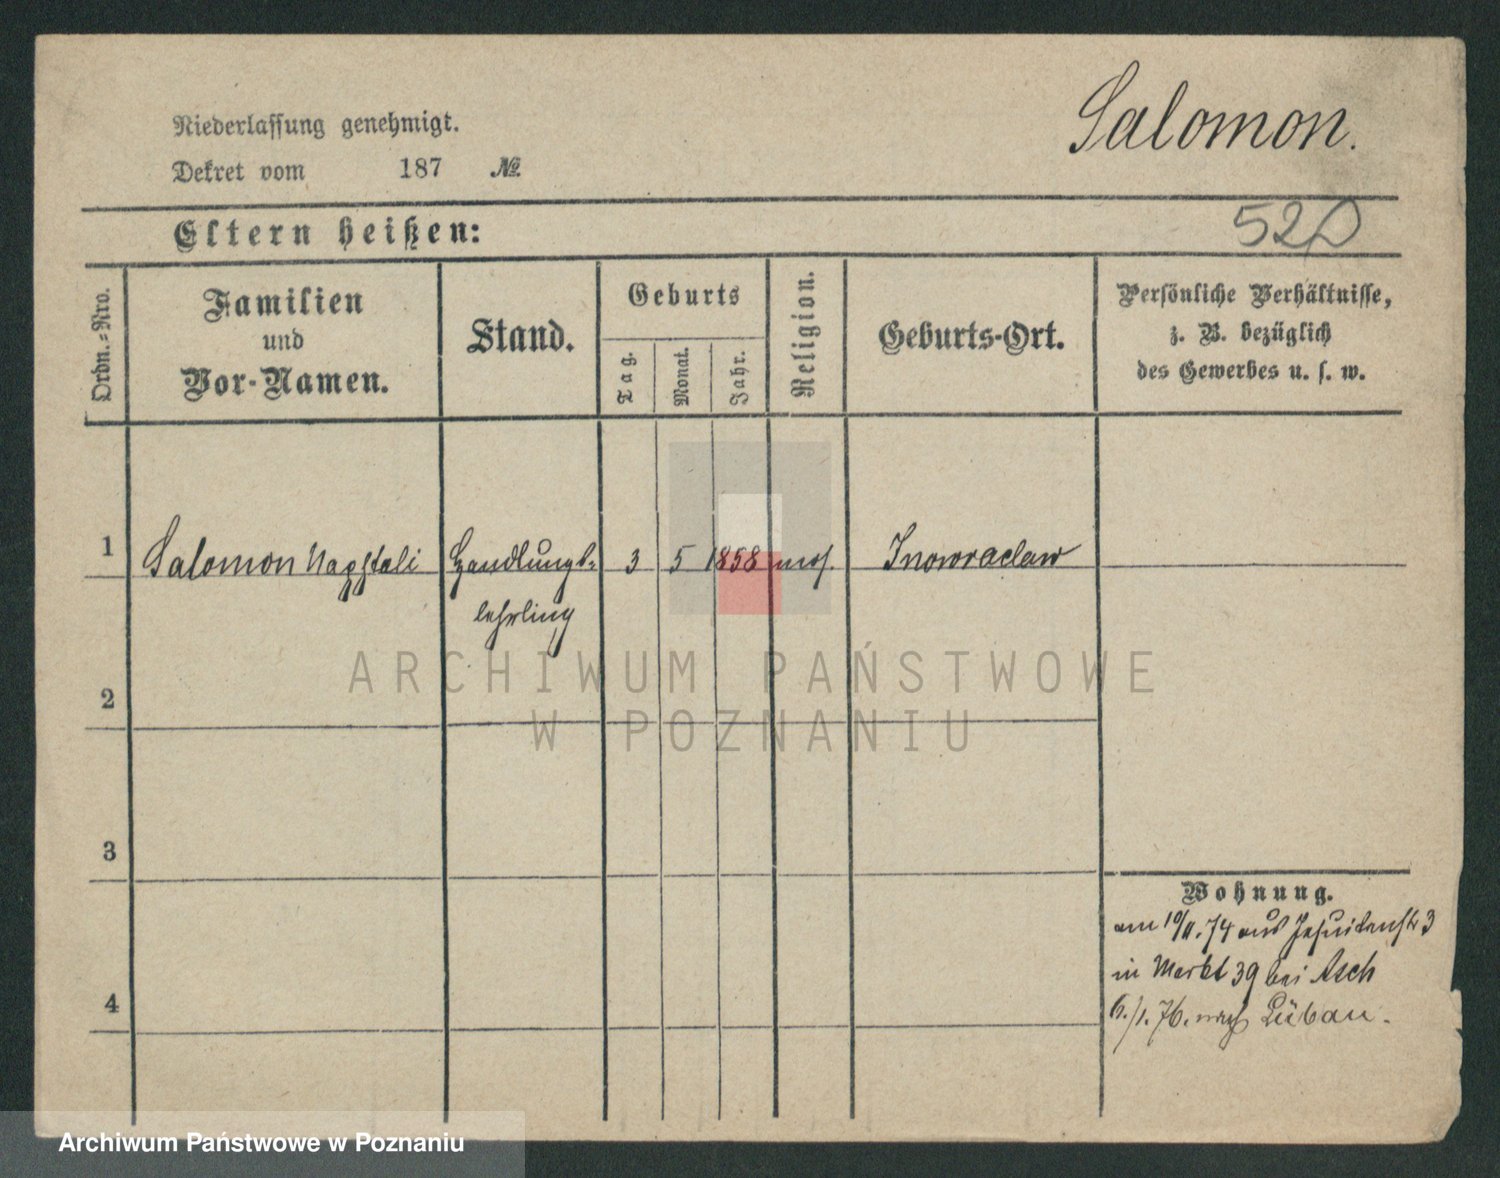 Salomon.
Niederlassung genehmigt.
Dekret vom 187 №
Eltern heißen:
520
Ordn.-Nro.
Familien
und
Vor-Namen.
Stand.
Geburts
Tag.
Monat.
Jahr.
Religion.
Geburts-Ort.
Persönliche Verhältnisse,
z. B. bezüglich
des Gewerbes u. s. w.
1 Salomon Naphtali Handlungs- 3 5 1858 mos. Inowraclaw
lehrling
2
3
4
Wohnung.
am 10/11.74 aus Jesuitenstr 3
in Markt 39 bei Asch
6./1.76. nach Lübau.
ARCHIWUM PAŃSTWOWE
W POZNANIU
Archiwum Państwowe w Poznaniu